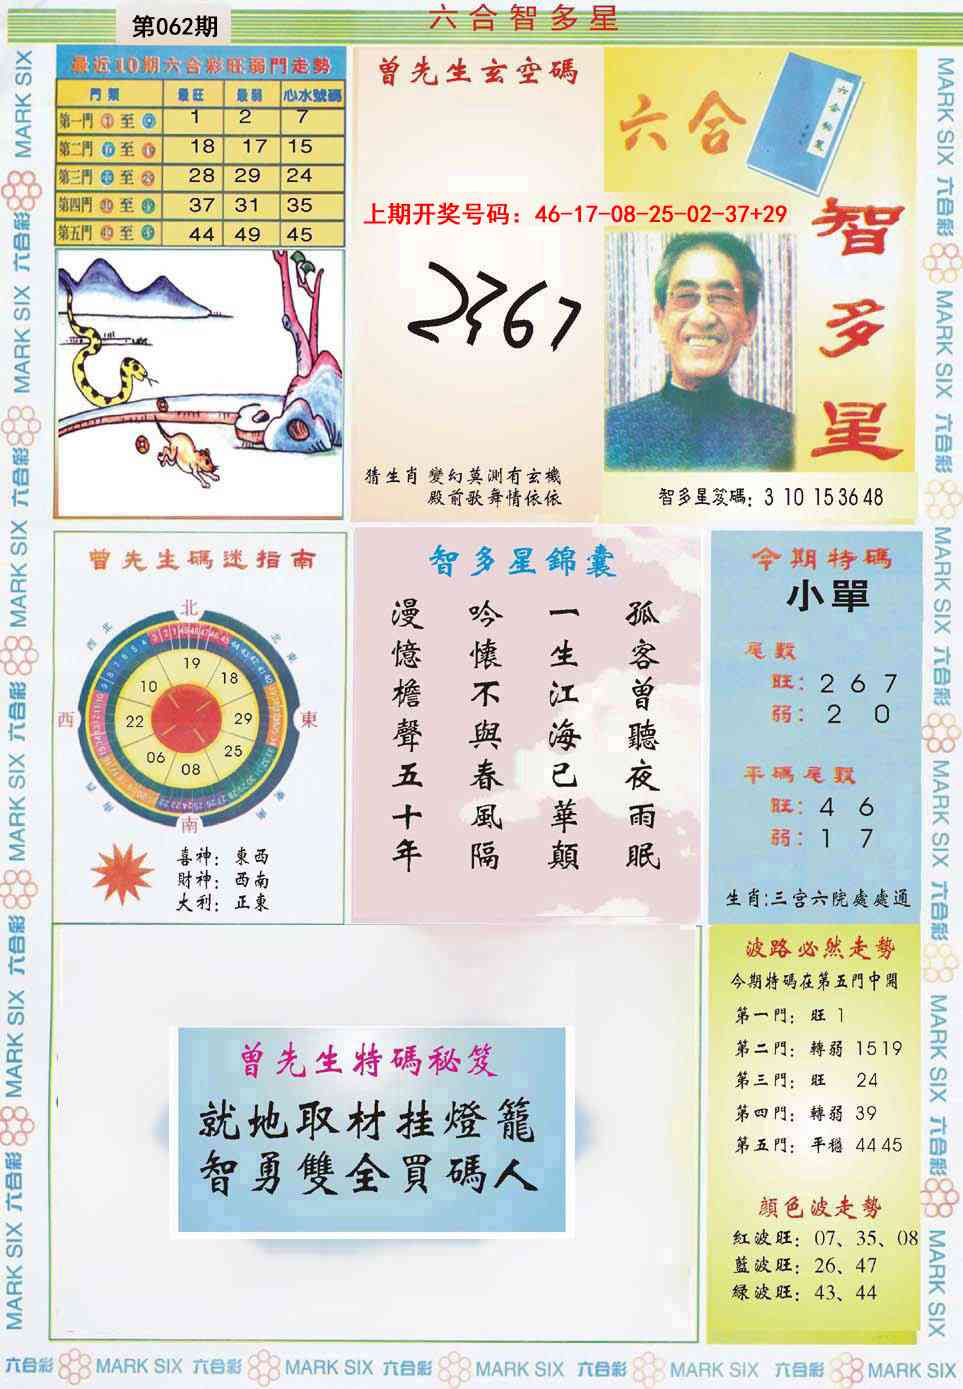 第062期
六合智多星
最近10期六合彩旺弱門走勢
門類 最旺 最弱 心水號碼
第一門 至 1 2 7
第二門 至 18 17 15
第三門 至 28 29 24
第四門 至 37 31 35
第五門 至 44 49 45
曾先生玄空碼
上期开奖号码：46-17-08-25-02-37+29
2367
猜生肖 變幻莫測有玄機
殿前歌舞情依依
六合
智多星
智多星笈碼：3 10 15 36 48
曾先生碼迷指南
北
西北
東北
西
東
西南
東南
南
19
18
29
25
08
06
22
10
喜神：東西
財神：西南
大利：正東
智多星錦囊
孤客曾聽夜雨眠
一生江海已華顛
吟懷不與春風隔
漫憶檐聲五十年
今期特碼
小單
尾數
旺：2 6 7
弱：2 0
平碼尾數
旺：4 6
弱：1 7
生肖：三宫六院處處通
曾先生特碼秘笈
就地取材挂燈籠
智勇雙全買碼人
波路必然走勢
今期特碼在第五門中開
第一門：旺 1
第二門：轉弱 15 19
第三門：旺 24
第四門：轉弱 39
第五門：平穩 44 45
顔色波走勢
紅波旺：07、35、08
藍波旺：26、47
綠波旺：43、44
MARK SIX 六合彩